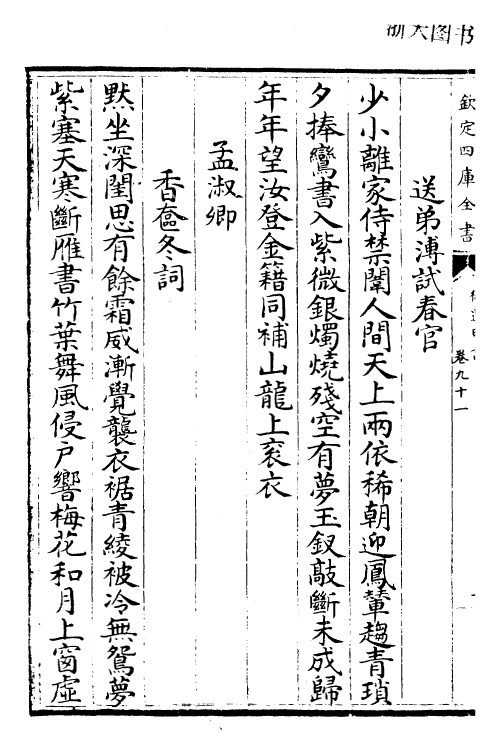 浙大图书
欽定四庫全書
卷九十一
送弟溥試春官
少小離家侍禁闈人間天上兩依稀朝迎鳳輦趨青瑣
夕捧鸞書入紫微銀燭燒殘空有夢玉釵敲斷未成歸
年年望汝登金籍同補山龍上衮衣
孟淑卿
香奩冬詞
默坐深閨思有餘霜威漸覺襲衣裾青綾被冷無鴛夢
紫塞天寒斷雁書竹葉舞風侵戶響梅花和月上窗虛